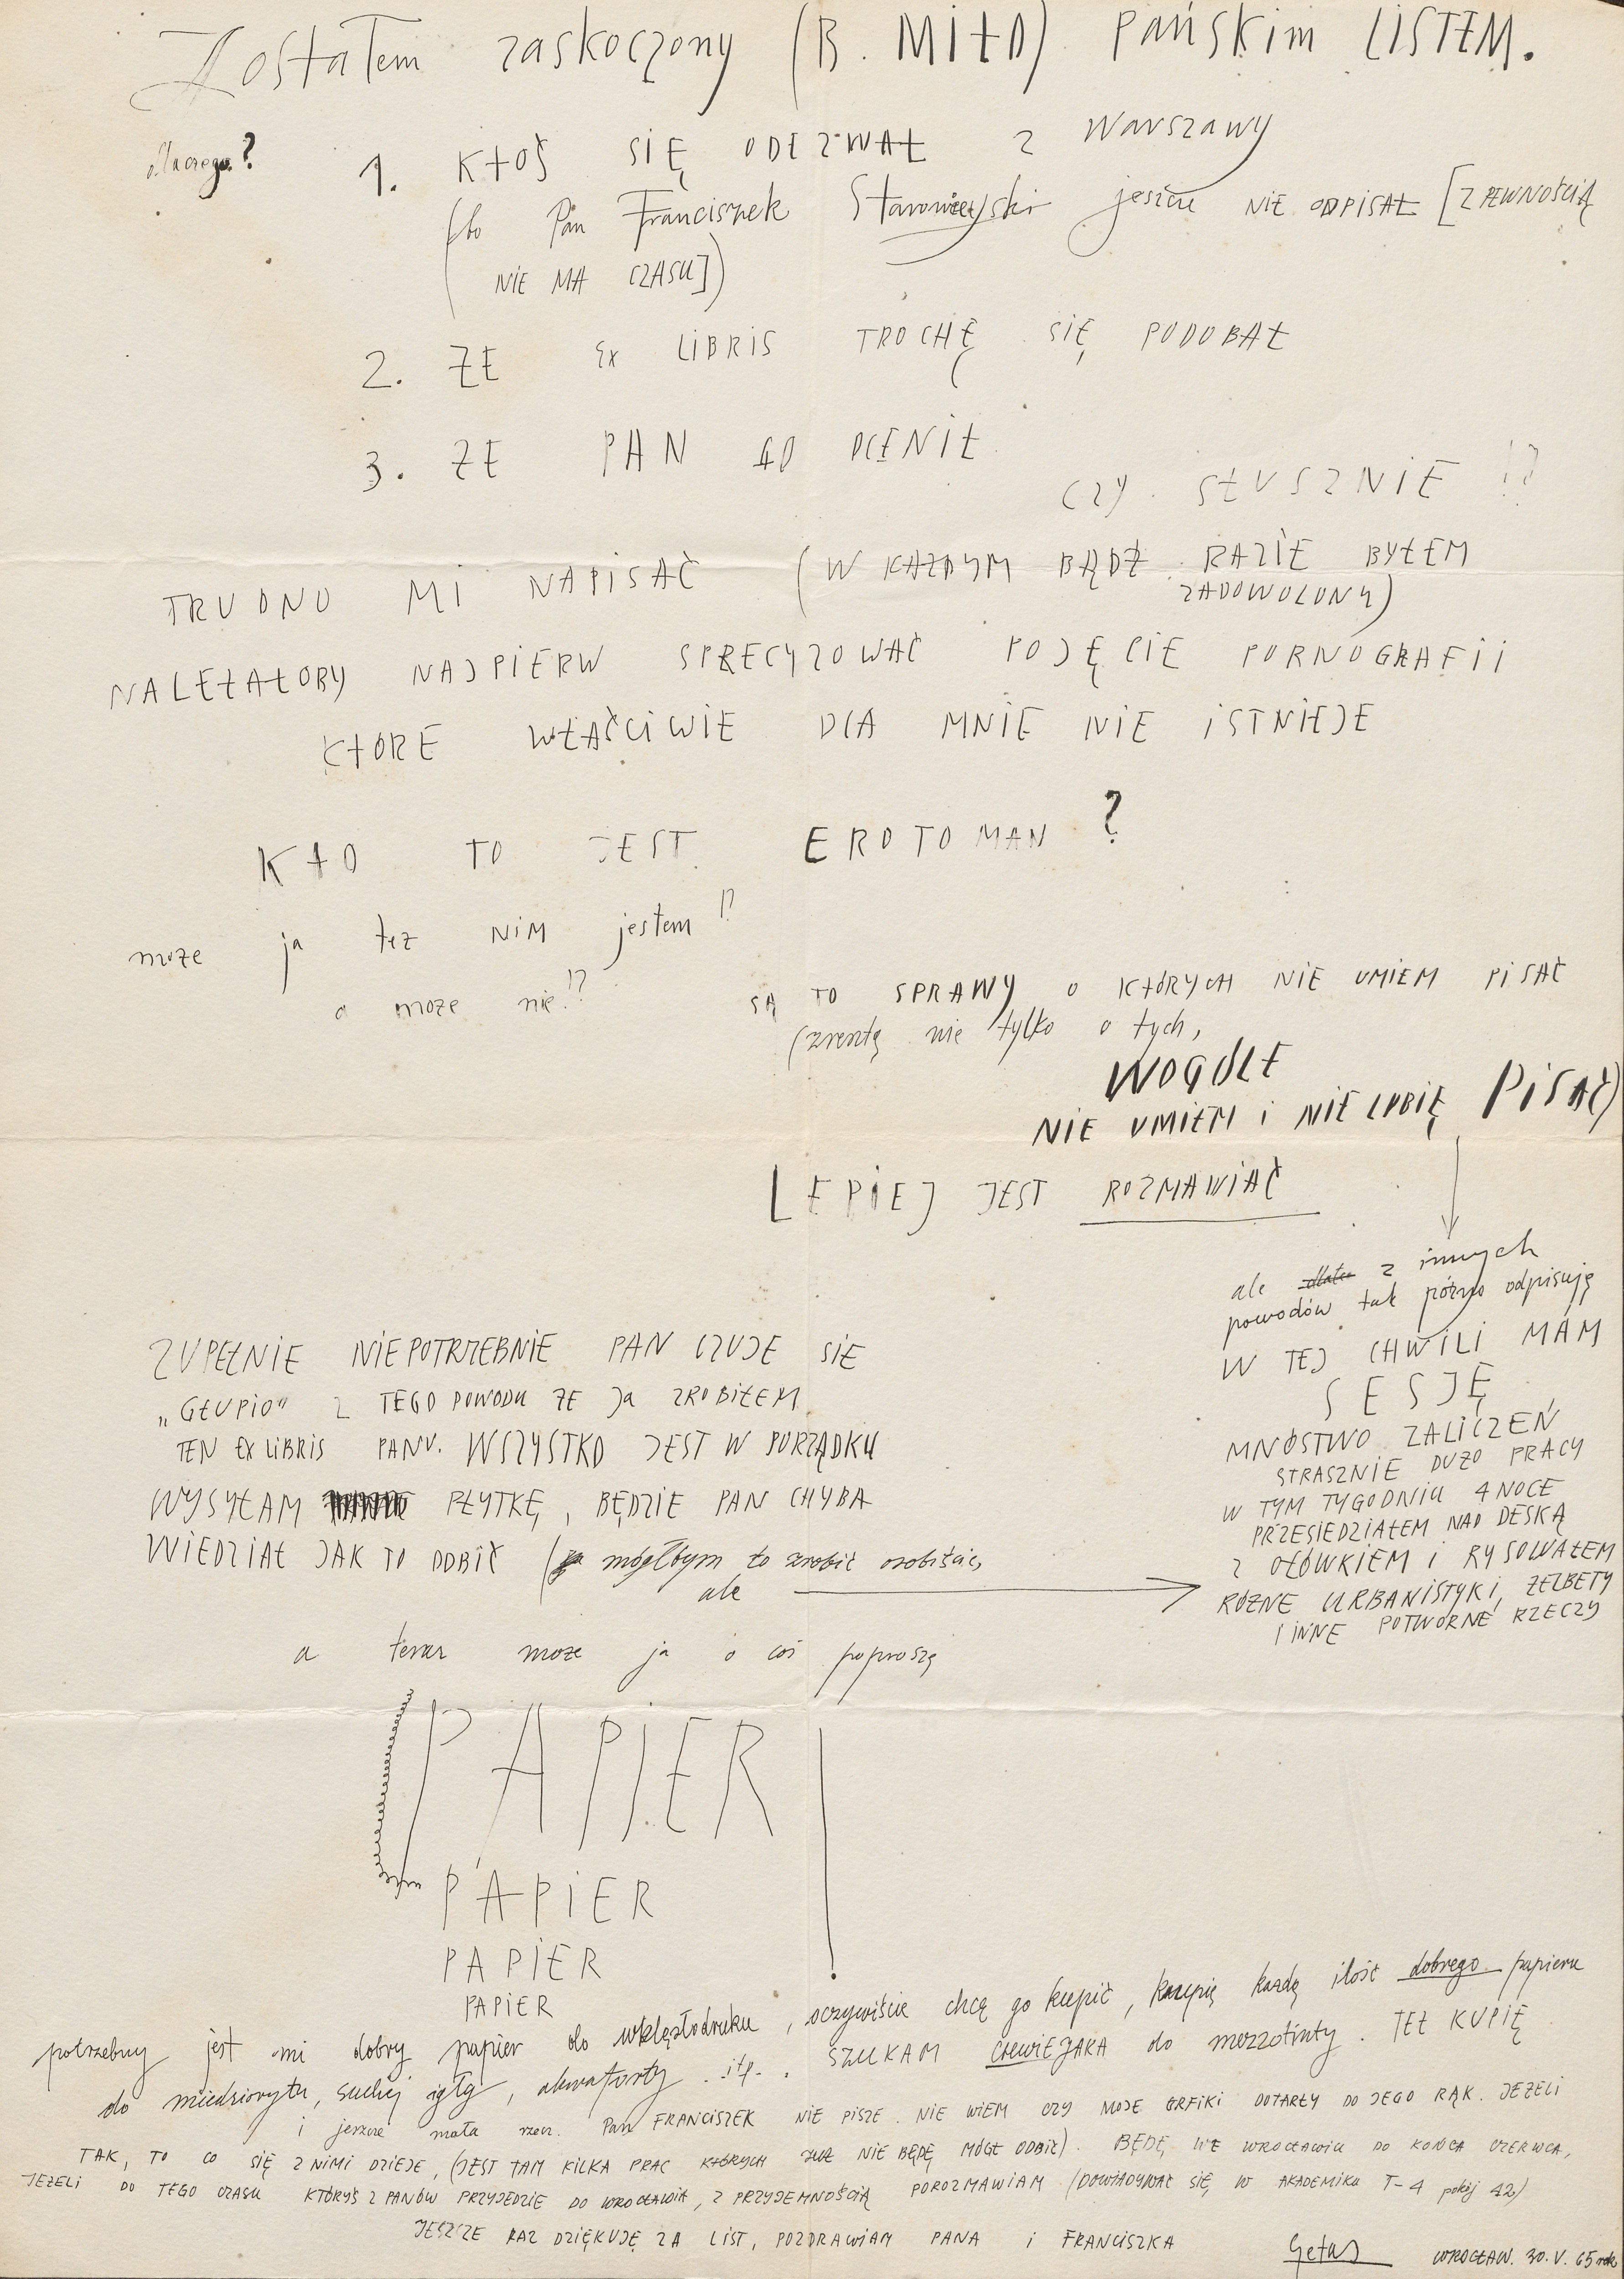 Zostałem zaskoczony (B. MIŁO) PAŃSKIM LISTEM.
dlaczego? 1. KTOŚ SIĘ ODEZWAŁ Z Warszawy
(bo Pan Franciszek Starowieyski jeszcze NIE ODPISAŁ [Z PEWNOŚCIĄ
NIE MA CZASU])
2. ŻE EX LIBRIS TROCHĘ SIĘ PODOBAŁ
3. ŻE PAN GO OCENIŁ
CZY SŁUSZNIE !?
TRUDNO MI NAPISAĆ (W KAŻDYM BĄDŹ RAZIE BYŁEM
ZADOWOLONY)
NALEŻAŁOBY NAJPIERW SPRECYZOWAĆ POJĘCIE PORNOGRAFII
KTÓRE WŁAŚCIWIE DLA MNIE NIE ISTNIEJE
KTO TO JEST EROTOMAN ?
może ja też NIM jestem !?
a może nie!?
SĄ TO SPRAWY O KTÓRYCH NIE UMIEM PISAĆ
(zresztą nie tylko o tych,
WOGÓLE
NIE UMIEM I NIE LUBIĘ PISAĆ)
LEPIEJ JEST ROZMAWIAĆ
ale z innych
powodów tak późno odpisuję
W TEJ CHWILI MAM
SESJĘ
MNÓSTWO ZALICZEŃ
STRASZNIE DUŻO PRACY
W TYM TYGODNIU 4 NOCE
PRZESIEDZIAŁEM NAD DESKĄ
Z OŁÓWKIEM I RYSOWAŁEM
RÓŻNE URBANISTYKI, ŻELBETY
I INNE POTWORNE RZECZY
ZUPEŁNIE NIEPOTRZEBNIE PAN CZUJE SIĘ
„GŁUPIO" Z TEGO POWODU ŻE JA ZROBIŁEM
TEN EX LIBRIS PANU. WSZYSTKO JEST W PORZĄDKU
WYSYŁAM PŁYTKĘ, BĘDZIE PAN CHYBA
WIEDZIAŁ JAK TO ODBIĆ (ja mógłbym to zrobić osobiście,
ale
a teraz może ja o coś poproszę
PAPIER !
PAPIER
PAPIER
PAPIER
potrzebny jest mi dobry papier do wklęsłodruku, oczywiście chcę go kupić, kupię każdą ilość dobrego papieru
do miedziorytu, suchej igły, akwaforty itp. SZUKAM CHWIEJAKA do mezzotinty. TEŻ KUPIĘ
i jeszcze mała rzecz. Pan FRANCISZEK NIE PISZE. NIE WIEM CZY MOJE GRFIKI DOTARŁY DO JEGO RĄK. JEŻELI
TAK, TO CO SIĘ Z NIMI DZIEJE, (JEST TAM KILKA PRAC KTÓRYCH JUŻ NIE BĘDĘ MÓGŁ ODBIĆ). BĘDĘ WE WROCŁAWIU DO KOŃCA CZERWCA,
JEŻELI DO TEGO CZASU KTÓRYŚ Z PANÓW PRZYJEDZIE DO WROCŁAWIA, Z PRZYJEMNOŚCIĄ POROZMAWIAM (DOWIADYWAĆ SIĘ, W AKADEMIKU T-4 pokój 42)
JESZCZE RAZ DZIĘKUJĘ ZA LIST, POZDRAWIAM PANA I FRANCISZKA
Getas WROCŁAW. 30. V. 65 rok